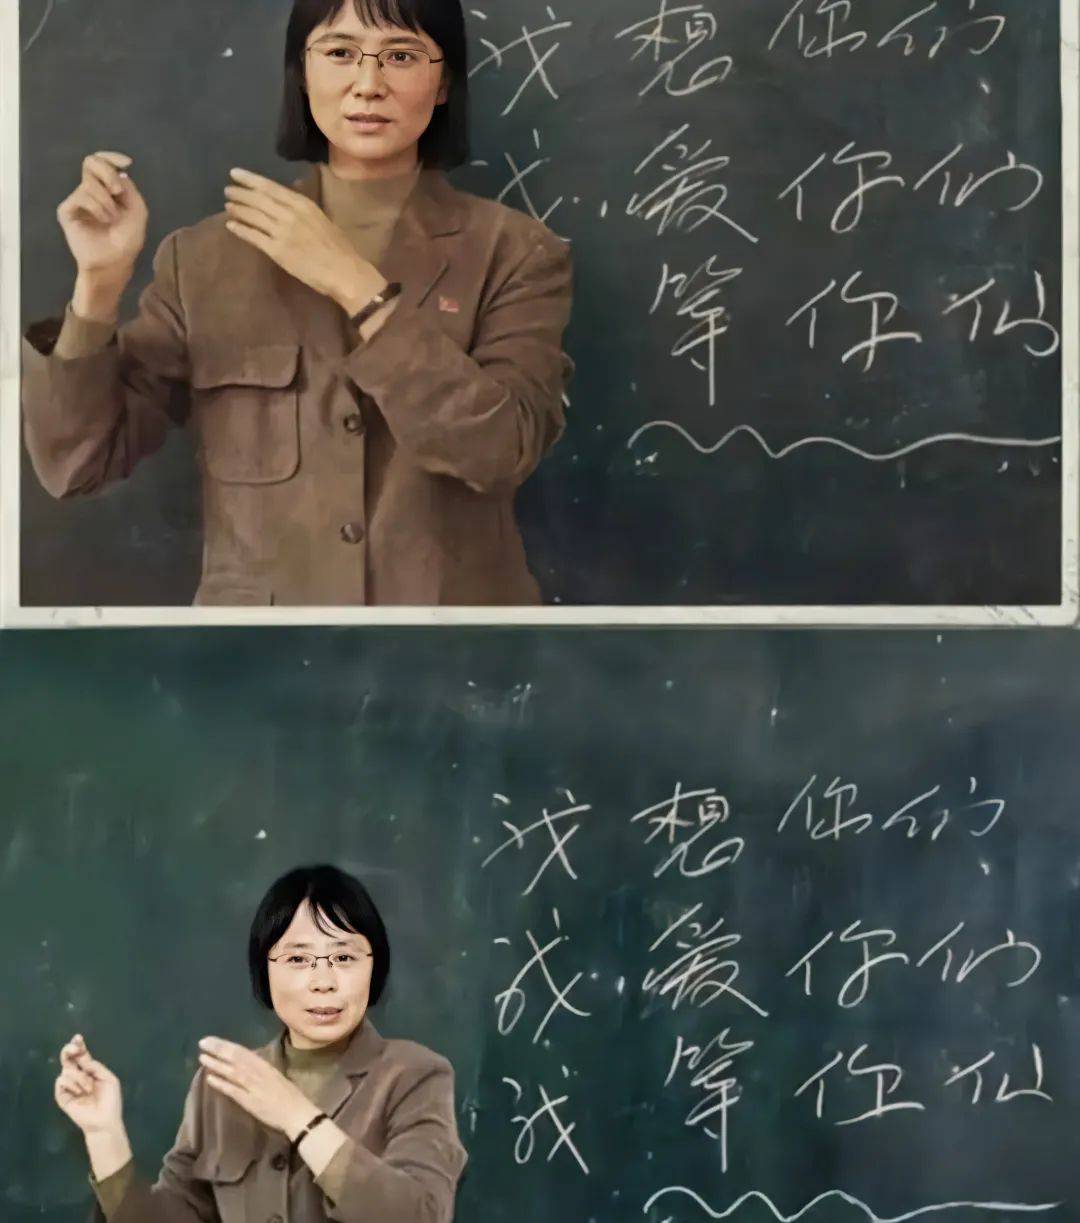 我想你们、
我爱你们
等你们
我想你们、
我爱你们
我等你们